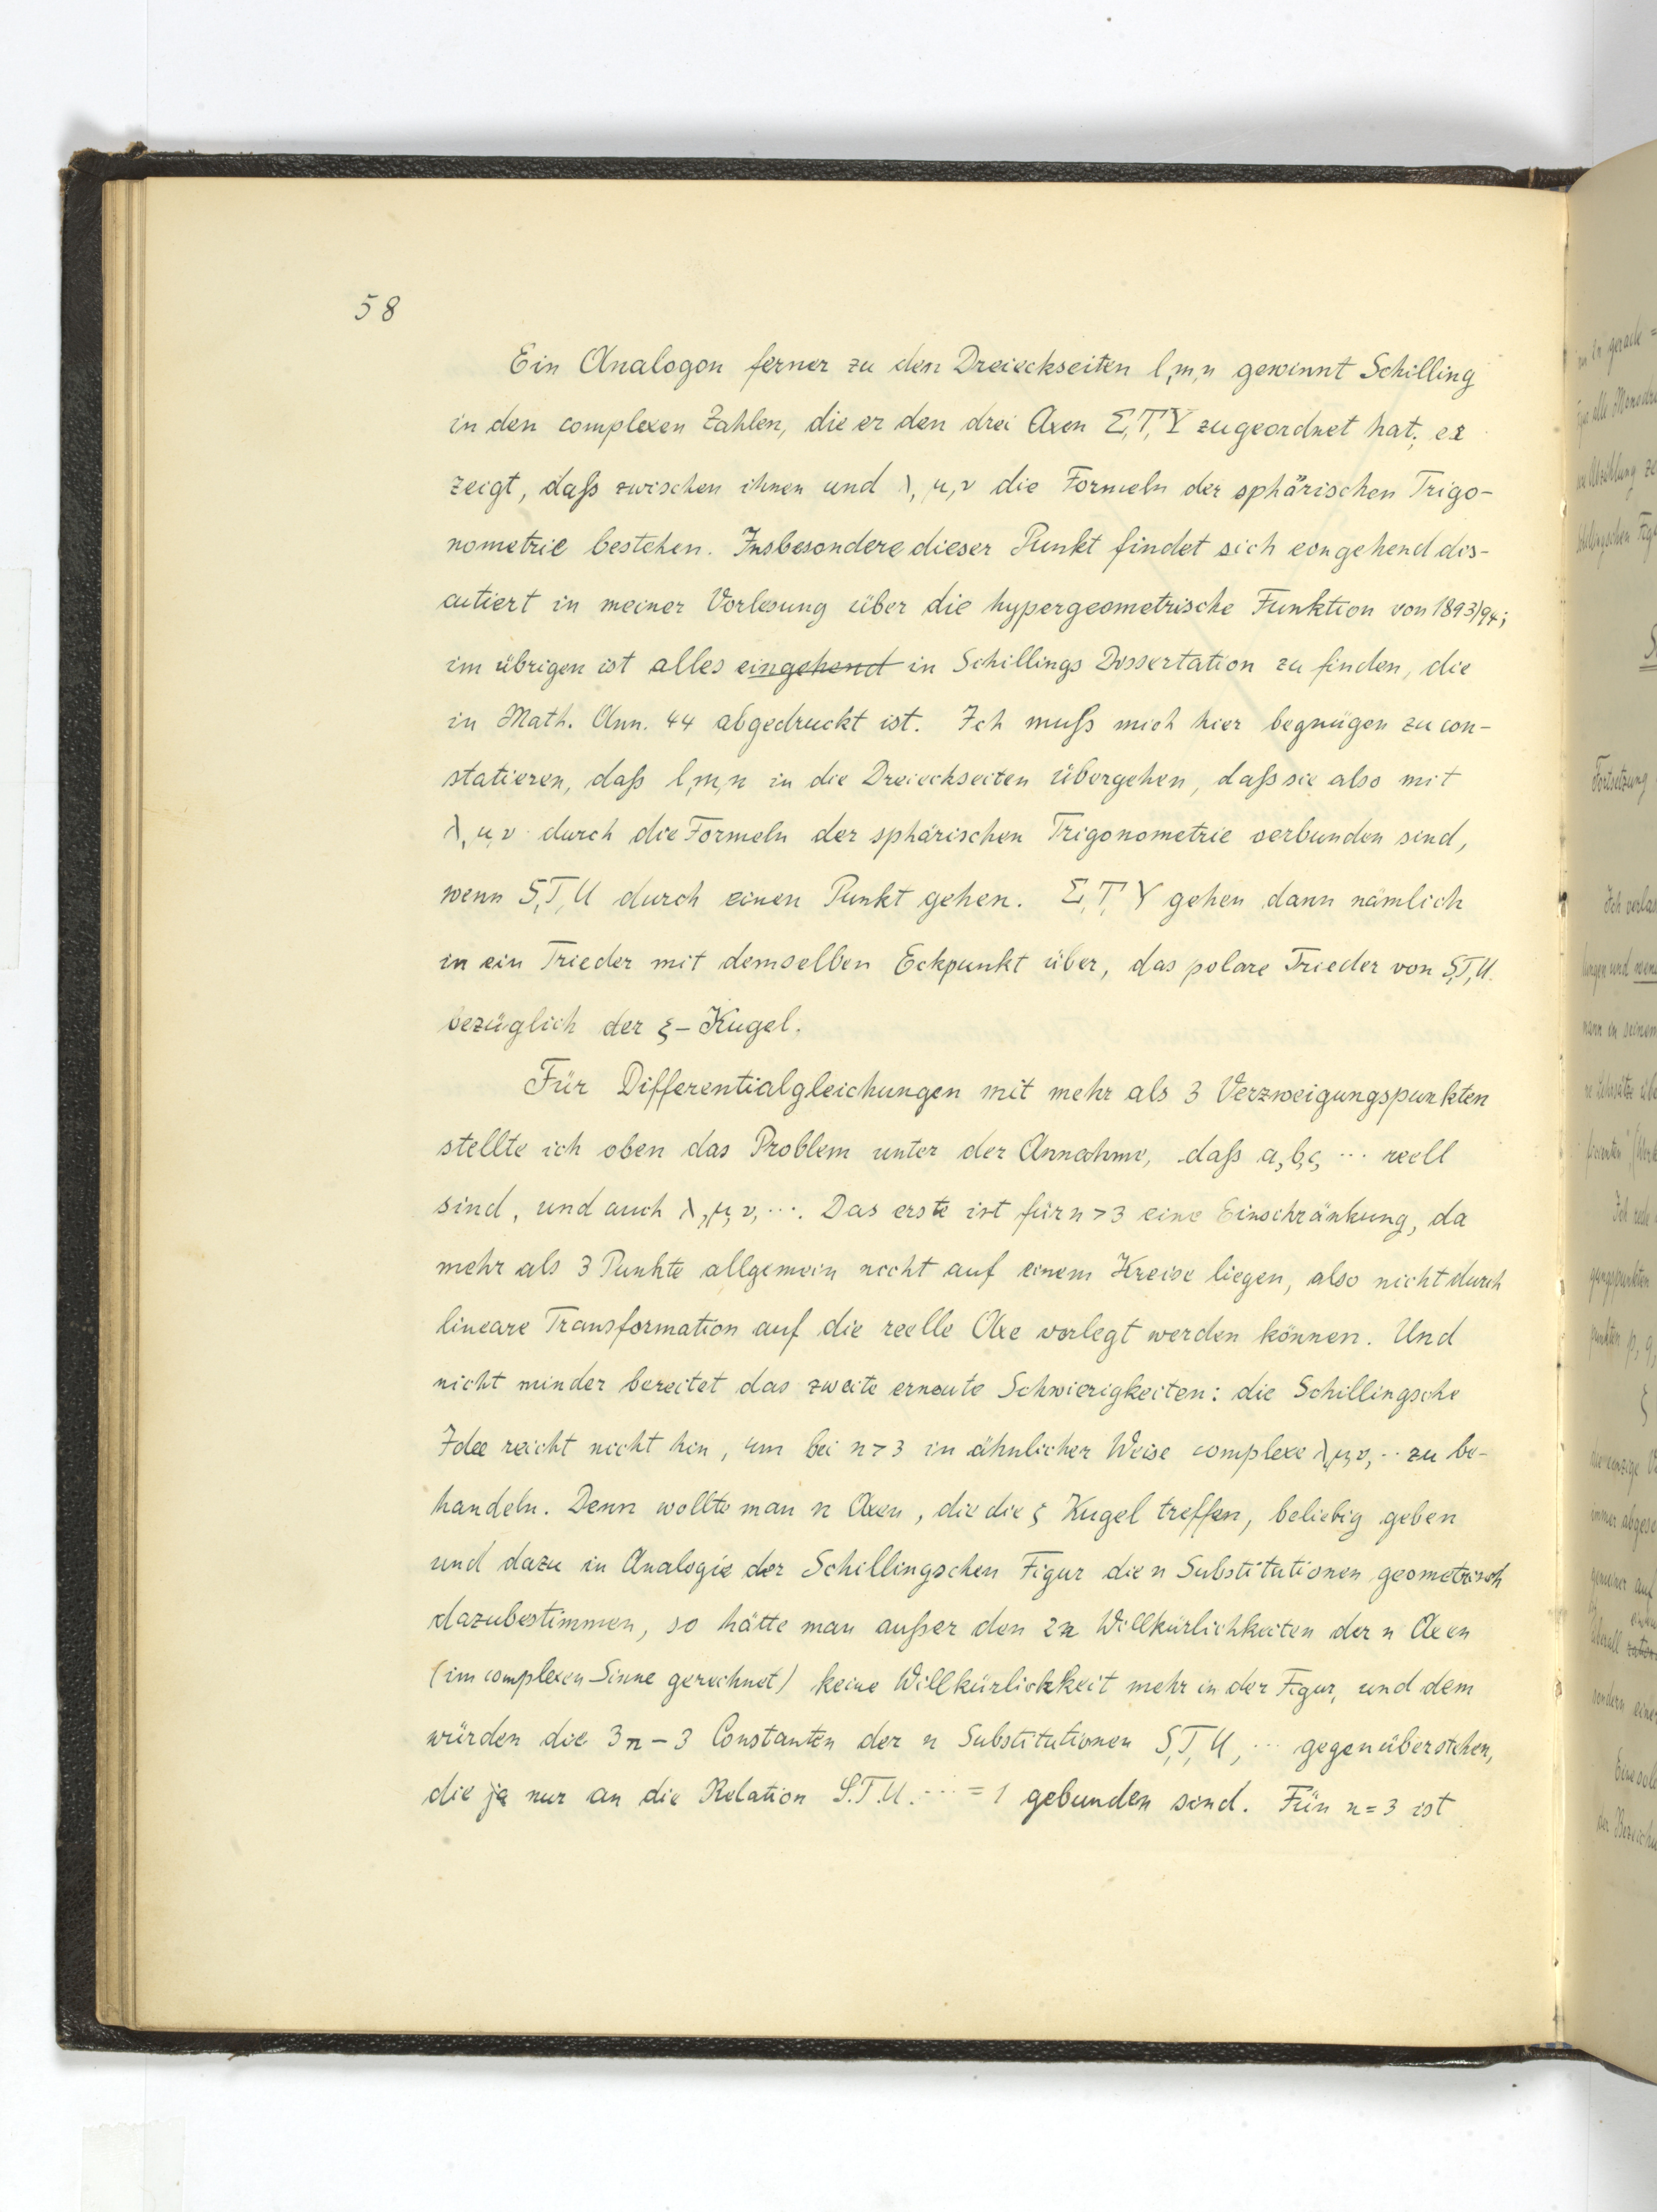 58
Ein Analogon ferner zu den Dreieckseiten l, m, n gewinnt Schilling
in den complexen Zahlen, die er den drei Axen Σ, T, Υ zugeordnet hat; er
zeigt, daß zwischen ihnen und λ, μ, ν die Formeln der sphärischen Trigo-
nometrie bestehen. Insbesondere dieser Punkt findet sich eingehend dis-
cutiert in meiner Vorlesung über die hypergeometrische Funktion von 1893/94;
im übrigen ist alles eingehend in Schillings Dissertation zu finden, die
in Math. Ann. 44 abgedruckt ist. Ich muß mich hier begnügen zu con-
statieren, daß l, m, n in die Dreieckseiten übergehen, daß sie also mit
λ, μ, ν durch die Formeln der sphärischen Trigonometrie verbunden sind,
wenn S, T, U durch einen Punkt gehen. Σ, T, Υ gehen dann nämlich
in ein Trieder mit demselben Eckpunkt über, das polare Trieder von S, T, U.
bezüglich der ξ-Kugel.
Für Differentialgleichungen mit mehr als 3 Verzweigungspunkten
stellte ich oben das Problem unter der Annahme, daß a, b, c, ... reell
sind, und auch λ, μ, ν, .... Das erste ist für n > 3 eine Einschränkung, da
mehr als 3 Punkte allgemein nicht auf einem Kreise liegen, also nicht durch
lineare Transformation auf die reelle Axe verlegt werden können. Und
nicht minder bereitet das zweite erneute Schwierigkeiten: die Schillingsche
Idee reicht nicht hin, um bei n > 3 in ähnlicher Weise complexe λ, μ, ν, .. zu be-
handeln. Denn wollte man n Axen, die die ξ Kugel treffen, beliebig geben
und dazu in Analogie der Schillingschen Figur die n Substitutionen geometrisch
dazubestimmen, so hätte man außer den 2n Willkürlichkeiten der n Axen
(im complexen Sinne gerechnet) keine Willkürlichkeit mehr in der Figur, und dem
würden die 3n - 3 Constanten der n Substitutionen S, T, U, ... gegenüberstehen,
die ja nur an die Relation S.T.U. ... = 1 gebunden sind. Für n = 3 ist